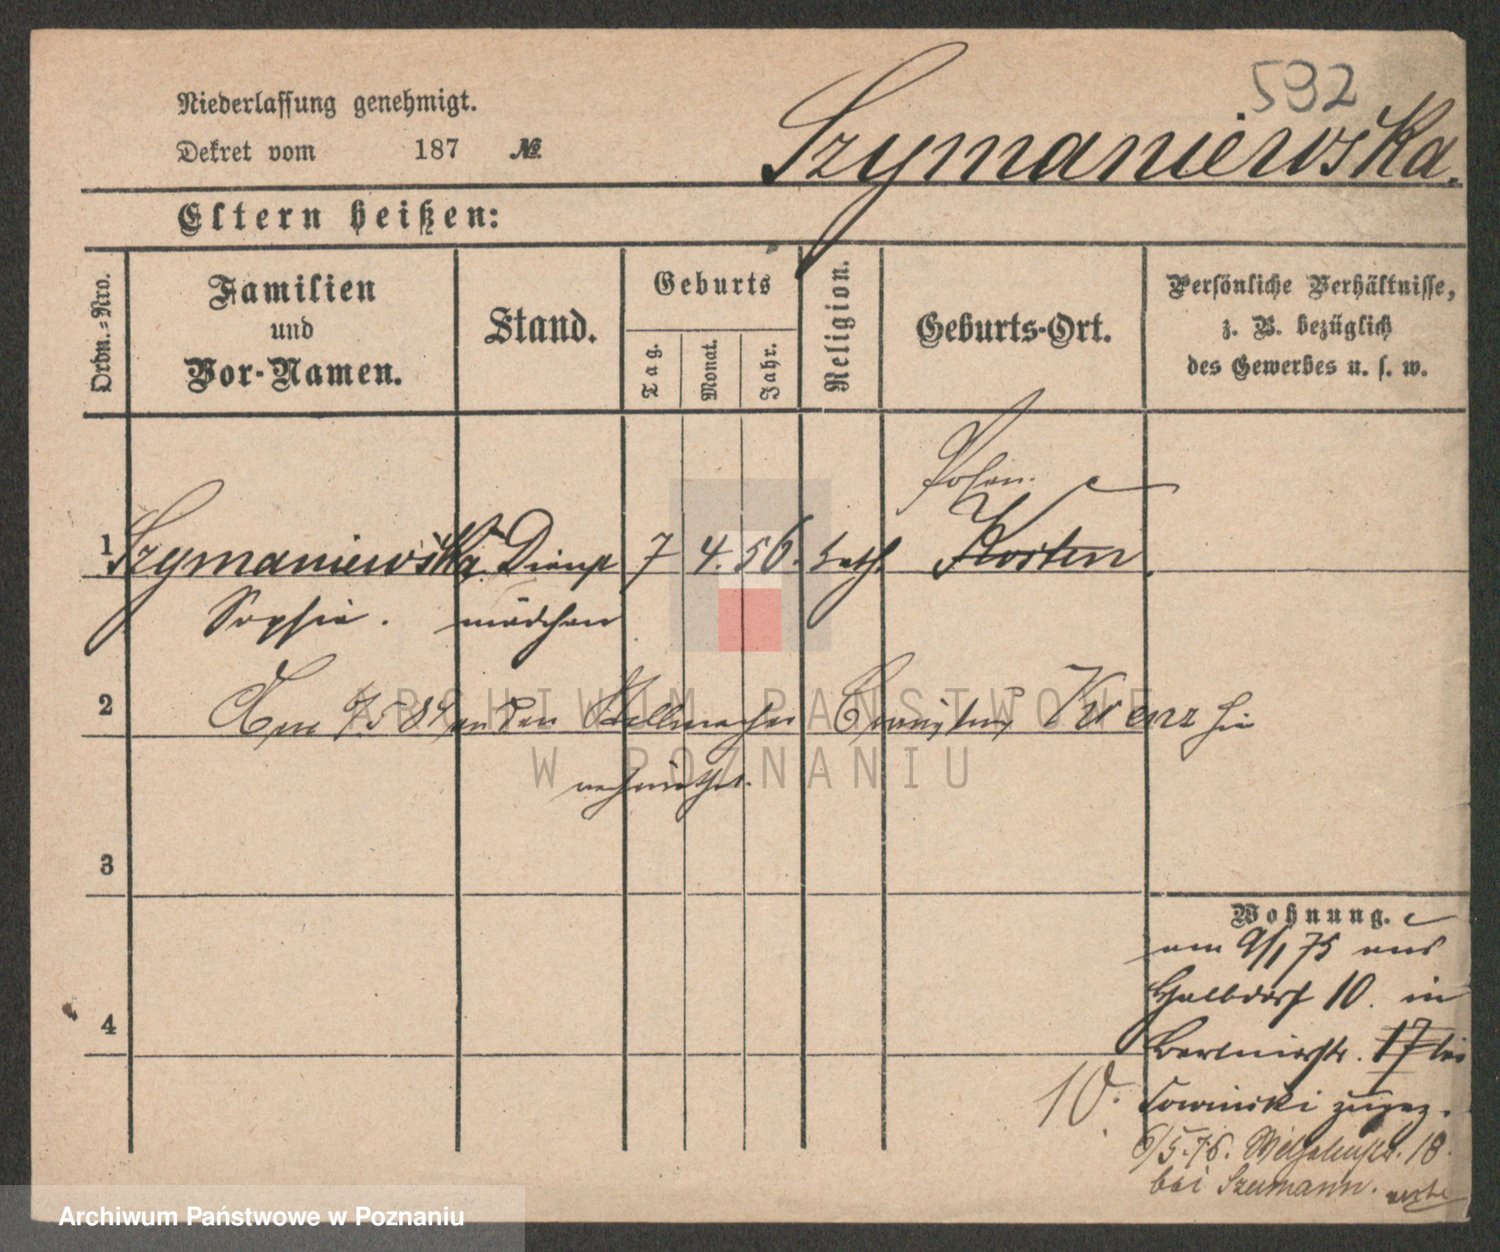 592
Niederlassung genehmigt.
Dekret vom 187 №
Szymaniewska.
Eltern heißen:
Ordn.=Nro.
Familien
und
Vor-Namen.
Stand.
Geburts
Tag.
Monat.
Jahr.
Religion.
Geburts-Ort.
Persönliche Verhältnisse,
z. B. bezüglich
des Gewerbes u. s. w.
Posen.
1 Szymaniewska Dienst 7 4. 56. kath. Kosten
Sophie. mädchen
2 Am 9/5 84 an den Stellmacher Krenz hie
verheirathet.
3
Wohnung.
am 9/1 75 aus
Halbdorf 10. in
4
Berlinerstr. 17 bei
10.
Sowinski zugez.
6/5.76. 18.
bei Szumann.
ARCHIWUM PAŃSTWOWE
W POZNANIU
Archiwum Państwowe w Poznaniu